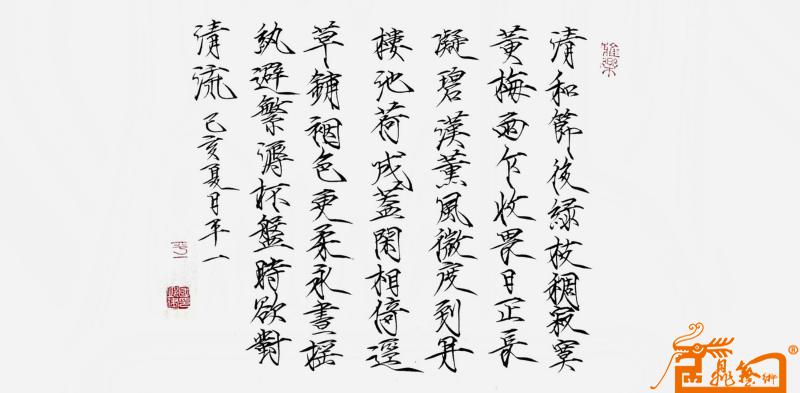 清和節後綠枝稠寂寞
黃梅雨乍收畏日正長
凝碧漢薰風微度到丹
樓池荷成蓋閑相倚逕
草鋪裀色更柔永晝搖
紈避繁溽杯盤時欲對
清流己亥夏月平一
平一